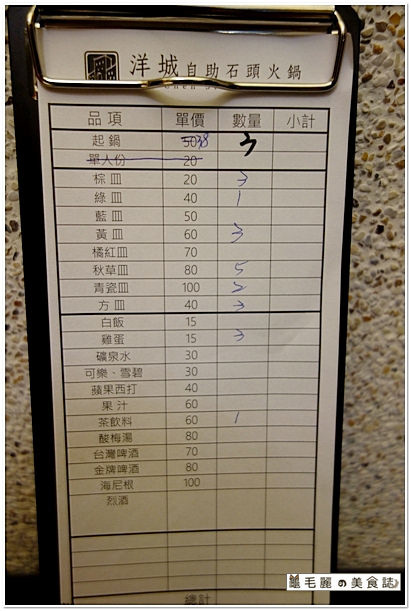 洋城自助石頭火鍋
品項 單價 數量 小計
起鍋 50 38 3
單人份 20
棕皿 20 3
綠皿 40 1
藍皿 50
黃皿 60 3
橘紅皿 70
秋草皿 80 5
青瓷皿 100 2
方皿 40 3
白飯 15
雞蛋 15 3
礦泉水 30
可樂、雪碧 30
蘋果西打 40
果汁 60
茶飲料 60 1
酸梅湯 80
台灣啤酒 70
金牌啤酒 80
海尼根 100
烈酒
總計
毛麗の美食誌